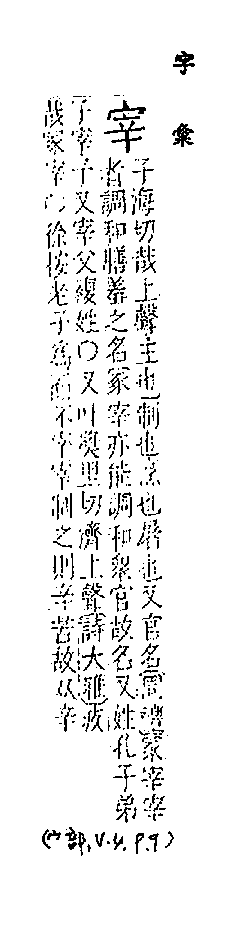 字彙
宰
子海切哉上聲主也制也烹也屠也又官名周禮冢宰宰
者調和膳羞之名冢宰亦能調和衆官故名又姓孔子弟
子宰予又宰父複姓○又叶獎里切濟上聲詩大雅疚
哉冢宰○徐按老子為而不宰宰制之則辛苦故从辛
(宀部,V.4.P.9)